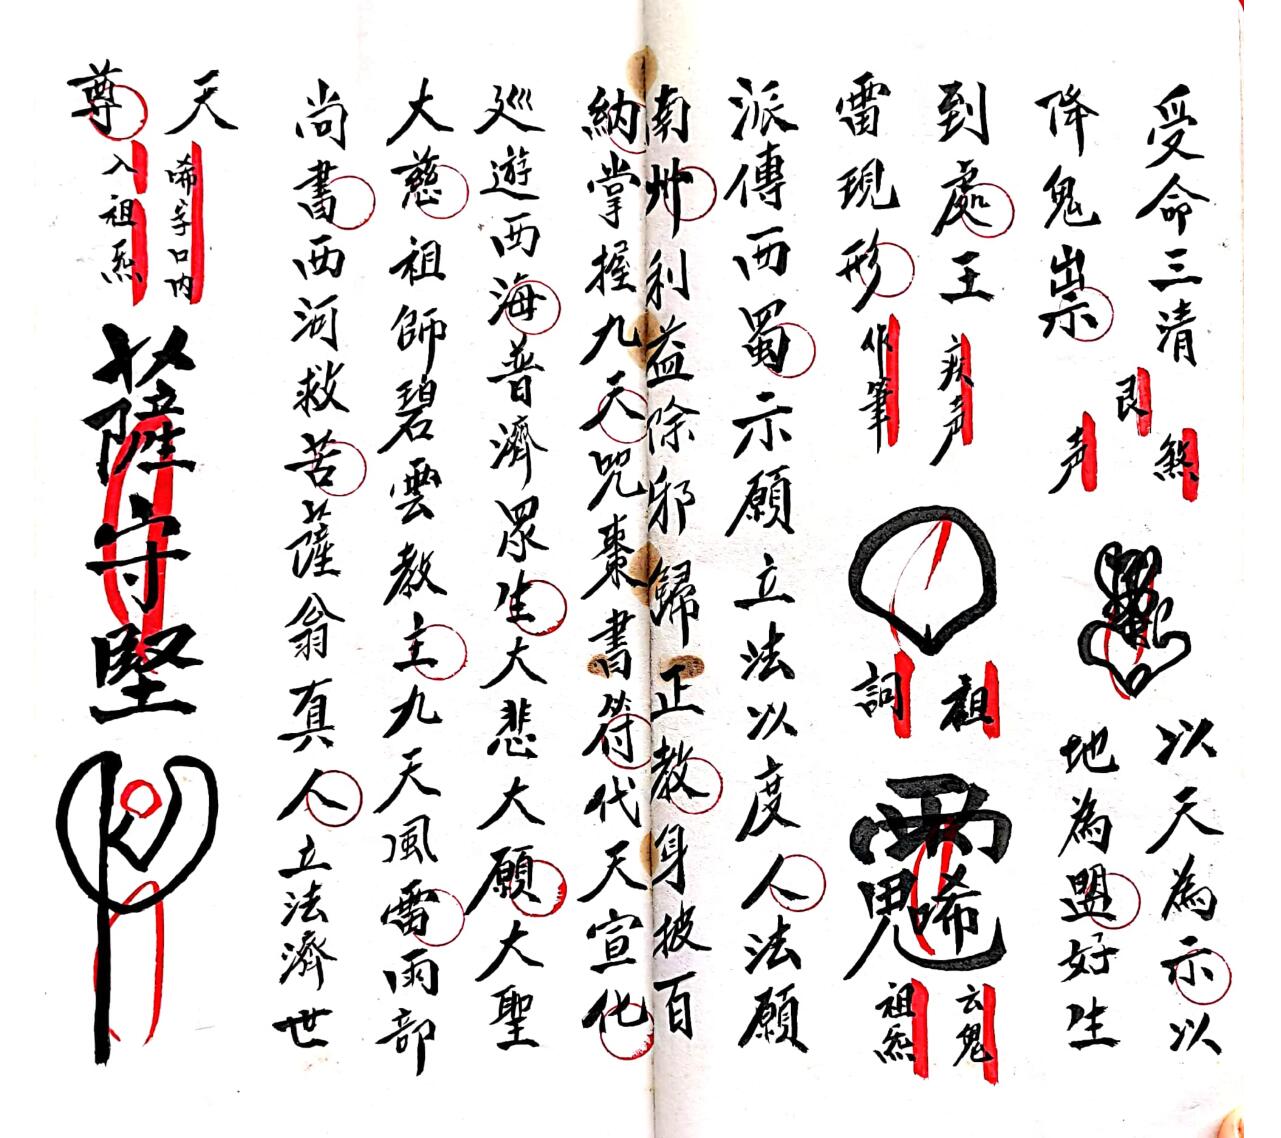 受命三清
降鬼祟
煞
艮
声
以天為示以
地為盟好生
到處王
疾声
雷現形
作筆
祖
詞
云鬼
祖炁
派傳西蜀示願立法以度人法願
南卅利益除邪歸正教身披百
納掌握九天咒棗書符代天宣化
巡遊西海普濟眾生大悲大願大聖
大慈祖師碧雲教主九天風雷雨部
尚書西河救苦薩翁真人立法濟世
天
唏字口内
尊
入祖炁
薩守堅